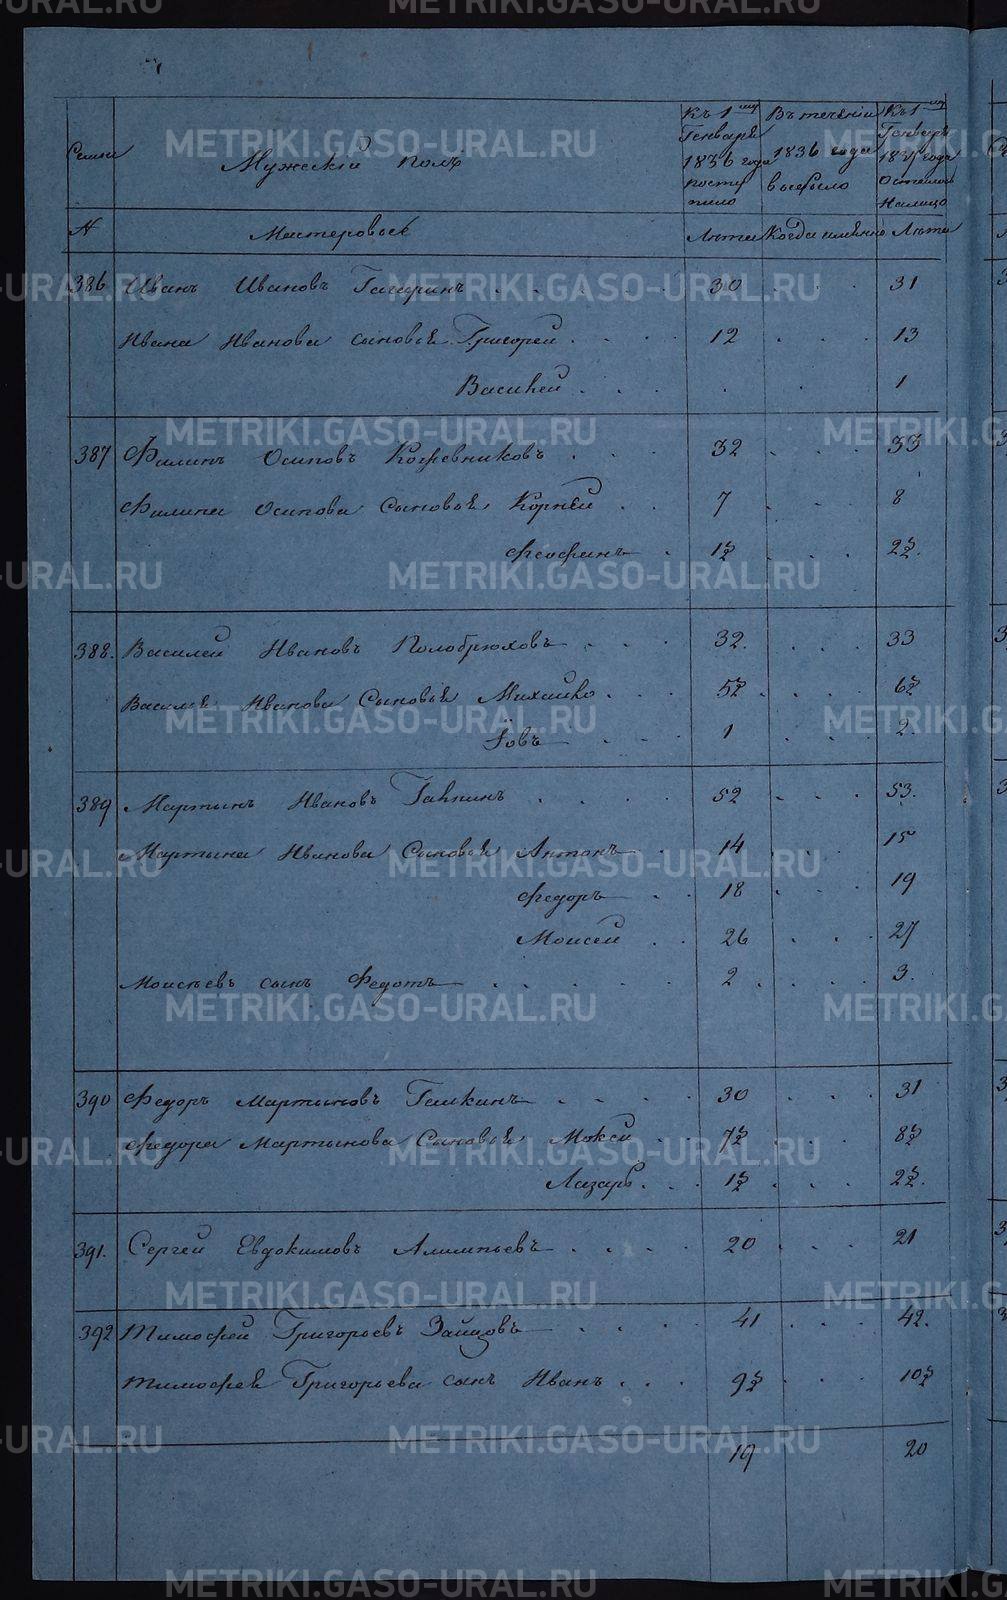 METRIKI.GASO-URAL.RU
Семьи
№
Мужескій полъ
Мастеровые
Къ 1му Генваря 1836 года посту пило
Лѣта
Въ теченіи 1836 года выбыло
Когда имянно
Къ 1му Генваря 1837 года Осталось Налицо
Лѣта
386 Иванъ Ивановъ Гагаринъ . . . . 30 . . . 31
Ивана Иванова сыновья Григорей . . . . 12 . . . 13
Василей . . . . . . 1
387 Филипъ Осиповъ Кожевниковъ . . . 32 . . . 33
Филипа Осипова Сыновья Корней . . 7 . . . 8
Феофанъ . 1½ . . . 2½.
388. Василей Ивановъ Полобрюховъ . . . 32. . . . 33
Василья Иванова Сыновья Михайло . . . 5½ . . . . 6½
Іовъ . . . 1 . . . 2.
389 Мартынъ Ивановъ Галкинъ . . . . 52 . . . 53.
Мартына Иванова Сыновья Антонъ . 14 . . . 15
Федоръ . . 18 . . . 19
Моисей . . 26 . . . 27
Моисѣевъ сынъ Федотъ . . . . . . 2 . . . . 3.
390 Федоръ Мартыновъ Галкинъ . . . . 30 . . . 31
Федора Мартынова Сыновья Мокей . . 7½ . . . 8½
Лазарь . . . 1½ . . . . 2½.
391. Сергей Евдокимовъ Алимпьевъ . . . . 20 . . . 21
392 Тимофей Григорьевъ Зайцовъ . . . . 41 . . . 42.
Тимофея Григорьева сынъ Иванъ . . . 9½ . . . . 10½
19 20